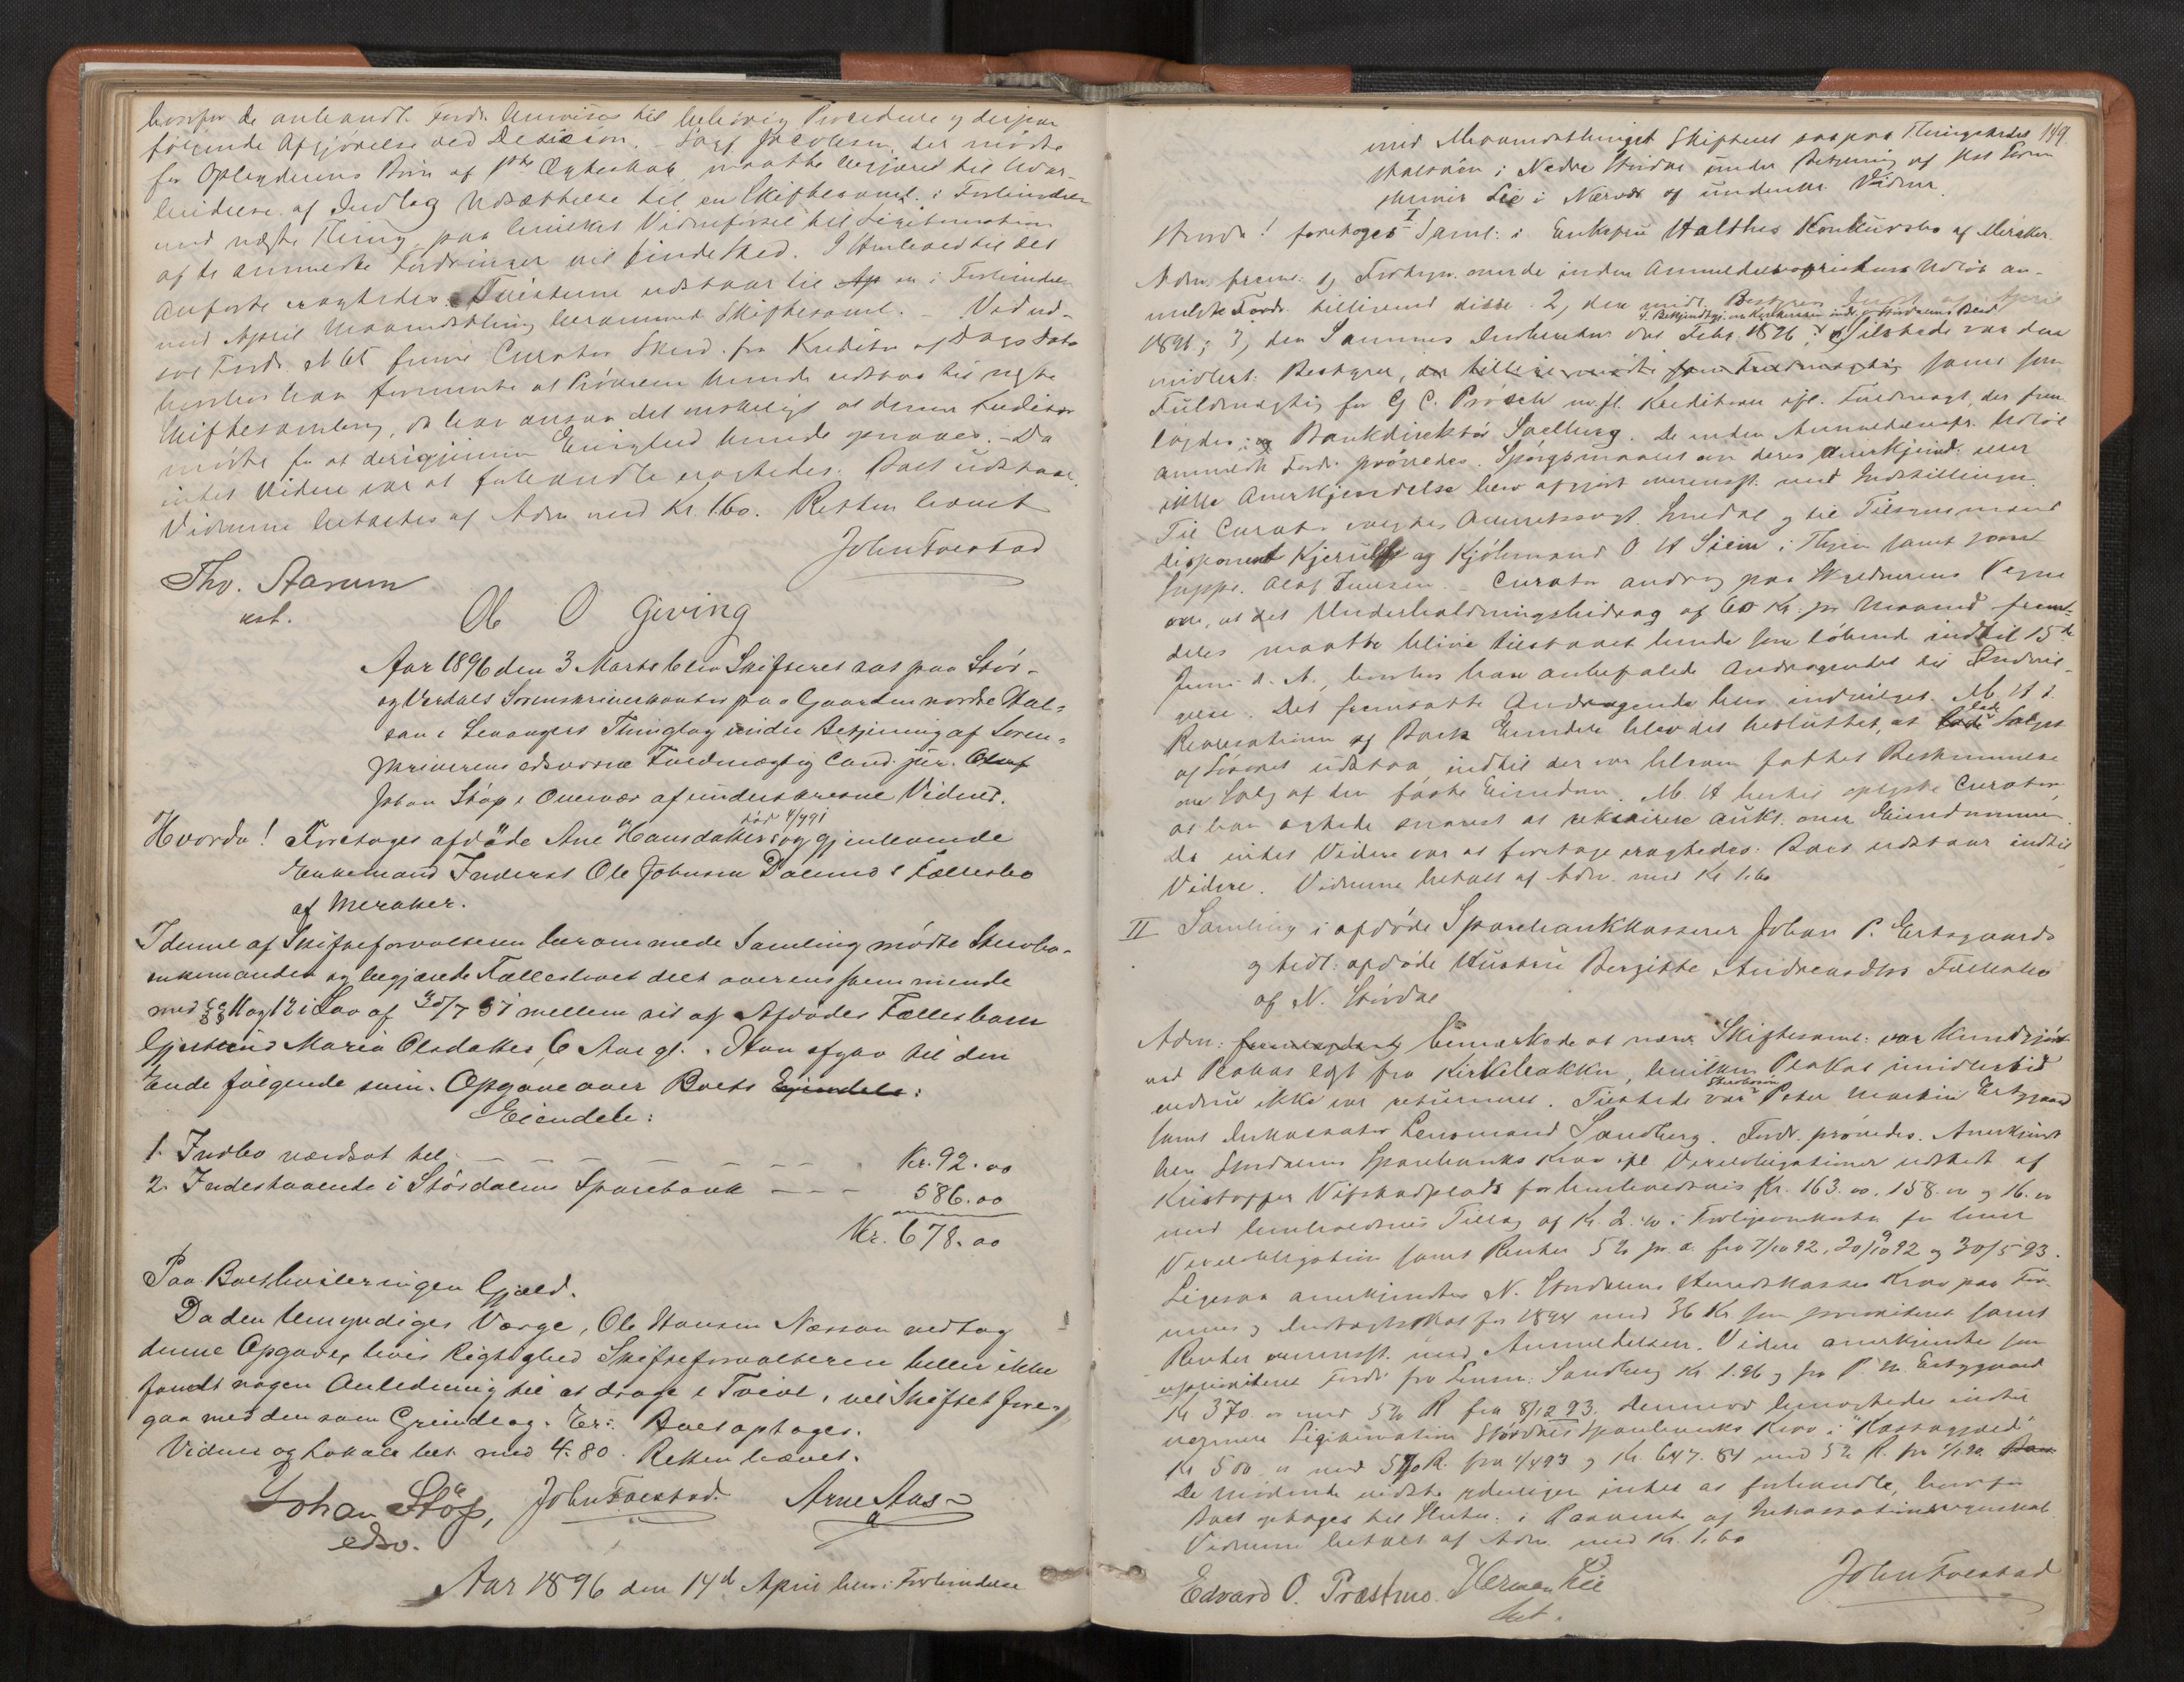 hvorfor de anhandt. Fordr. henvises til behørig Procedure og derpaa
følgende Afgjørelse ved Decision. Sagf. Jacobsen, der mødte
for Opbyderens Børn af 1ste Ægteskab, maatte begjære til Udar-
beidelse af Indlæg Udsættelse til en Skiftesaml. i Forbindelse
med næste Thing, paa hvilket Vidneførsel til Legitimation
af de anmeldte Fordringer vil finde Sted. I Henhold til det
Anførte eragtedes: Tvisterne udstaar til en i Forbindelse
med April Maanedsthing berammet Skiftesaml. – Ved ud-
fremkom Curator Smed. fra Kreditor af Dags Dato
hvorhos han formente at Prøvelsen kunde udstaa til næste
Skiftesamling, da han ansaa det ønskeligt at denne Kreditor
mødte for at derigjennem Enighed kunde opnaaes. – Da
intet Videre var at forhandle eragtedes: Boet udstaar.
Vidnerne betaltes af Adm. med Kr. 1.60. Retten hævet
John Foestad
Tho. Aarum
cst.
Ole O Giving
Aar 1896 den 3 Marts blev Skifteret sat paa Stør-
og Værdals Sorenskriverkontor paa Gaarden nordre Hal-
san i Levangers Thinglag under Betjening af Soren-
skriverens edsvorne Fuldmægtig Cand. jur.
Johan Støp i Overvær af underskrevne Vidner.
død 4/4 91
Hvorda! Foretoges afdøde Ane Hansdatters og gjenlevende
Enkemand Inderst Ole Johnsen Dalmo's Fællesbo
af Meraker.
I denne af Skifteforvalteren berammede Samling mødte Stervbo-
enkemanden og begjærede Fællesboet delt overensstemmende
med §§ 11 og 12 i Lov af 30/7 51 mellem sig og Afdødes Fællesbarn
Gjertine Maria Olsdatter, 6 Aar gl. Han afgav til den
Ende følgende sum. Opgave over Boets Eiendele:
Eiendele:
1. Indbo værdsat til – – – – – – – Kr. 92.00
2. Indestaaende i Størdalens Sparebank – – – 586.00
Kr. 678.00
Paa Boet hviler ingen Gjæld.
Da den Umyndiges Værge, Ole Hansen Næssan vedtog
denne Opgave, hvis Rigtighed Skifteforvalteren heller ikke
fandt nogen Anledning til at drage i Tvivl, vil Skiftet fore-
gaa med den som Grundlag. Er: Boet optages.
Vidner og Lokale bet. med 4.80. Retten hævet.
Johan Støp, John Foestad. Arne Aas
edsv.
Aar 1896 den 14d April blev i Forbindelse
149
med Maanedsthinget Skifteret sat paa Thingstedet
Halsøen i Nedre Størdal under Betjening af Kst Soren
skriver Lie i Nærvær af underskr. Vidner.
I
Hvorda! foretoges Saml: i Enkefru Halthes Konkursbo af Meraker.
Adm. freml. 1) Fortegn. over de inden Anmeldelsesfristens Udløb an-
meldte Fordr. tilligemed disse. 2) den midl. Bestyrers
4. Bekjendtgj. om Konkursen indr. i Stordalens Blad
1896; 3) den Sammes Indberetn. dat Febr. 1896. Tilstede var den
midlert. Bestyrer, der tillige mødte som Fuldmægtig samt som
Fuldmægtig for G C. Prösch m. fl. Kreditorer ifl. Fuldmagt, der frem
lagdes; og Bankdirektør Svelburg. De inden Anmeldelsesfr. Udløb
anmeldte Fordr. prøvedes. Spørgsmaalet om deres Anerkjend. eller
ikke Anerkjendelse blev afgjort overensst. med Indstillingen.
Til Curator valgtes Overretssagf. Smedal og til Tilsynsmænd
disponent Kjerulff og Kjøbmand O H Siem i Thjem samt som
Suppl. Olaf Juulsen. – Curator androg paa Skyldnerens Vegne
om, at det Underholdningsbidrag af 60 Kr. pr Maaned frem-
deles maatte blive tilstaaet hende som løbende indtil 15de
Juni d. A., hvorhos han anbefalede Andragendet til Indvil-
gelse. Det fremsatte Andragende blev indvilget. M. H. t.
Realisationen af Boets Eiendele blev det besluttet, at lade Salget
af Løsøret udstaa, indtil der var bleven fattet Beskemmelse
om Salg af den faste Eiendom. M. H hertil oplyste Curator,
at han agtede snarest at rekvirere Aukt. over Eiendommen.
Da intet Videre var at foretage eragtedes: Boet udstaar indtil
Videre. Vidnerne betalt af Adm. med Kr 1.60
II Samling i afdøde Sparebankkasserer Johan P. Ertsgaards
og tidl. afdøde Hustru Bergitte Andreasdtrs Fællesbo
af N. Størdal
Adm: bemærkede at nærv. Skiftesaml: var kundgjort
ved Plakat læst fra Kirkebakken, hvilken Plakat imidlertid
endnu ikke var returneret. Tilstede var Stervbosøn Peter Martin Ertsgaard
samt Inkassator Lensmand Sandberg. Fordr. prøvedes. Anerkjent
blev Stordalens Sparebanks Krav ifl Vexelobligationer udstedt af
Kristoffer Vifstadplads for henholdsvis Kr. 163.00. 158.00 og 16.00
med henholdsvis Tillæg af Kr. 2.40 i Forligsomkostn. for hver
Vexelobligation samt Renter 5% pr. a. fra 7/10 92, 20/10 92 og 30/5 93.
Ligesaa anerkjendtes N. Stordalens Herredskasses Krav paa For-
mues og Indtægtsskat for 1894 med 36 Kr som prioriteret samt
Renter overensst. med Anmeldelsen. Videre anerkjendte som
uprioriteret Fordr fra Lensm. Sandberg Kr 1.96 og fra P. M. Ertsgaard
Kr 370.00 med 5% R fra 8/12 93. Derimod benægtedes indtil
nærmere Legitimation Størdalens Sparebanks Krav i "Kastagjæld"
Kr 500.00 med 5% R. fra 1/4 93 og Kr. 647.84 med 5% R. fra 1/1 90.
De Mødende vidste yderligere intet at forhandle, hvorfor
Boet optages til Slutn. i Paavente af Inkassationsregnskab
Vidnerne betalt af Adm. med Kr. 1.60
Edvard O. Præstmo. Herman Lie John Foestad
kst.